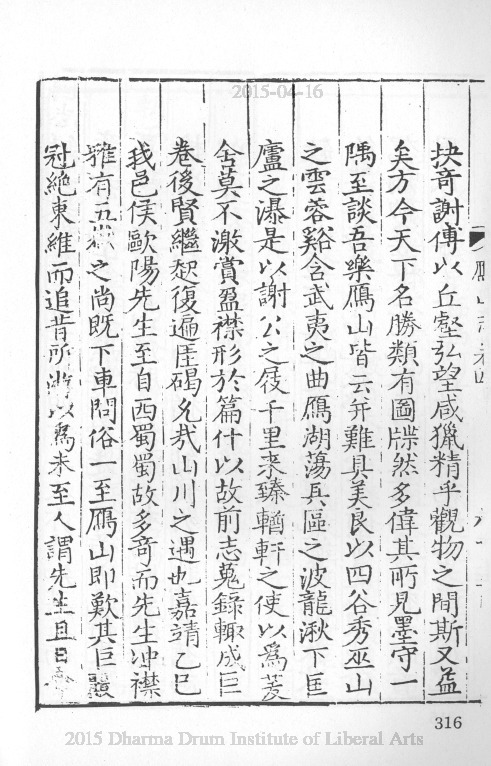 2015-04-16
抉奇謝傅以丘壑弘望咸獵精乎觀物之間斯又益
矣方今天下名勝類有圖牒然多偉其所見墨守一
隅至談吾樂鴈山皆云并難具美良以四谷秀巫山
之雲蓉谿含武夷之曲鴈湖蕩具區之波龍湫下匡
廬之瀑是以謝公之屐千里來臻輶軒之使以爲
舍莫不激賞盈襟形於篇什以故前志蒐錄輙成巨
卷後賢繼起復遍厓碣允哉山川之遇也嘉靖乙巳
我邑侯歐陽先生至自西蜀蜀故多奇而先生冲襟
雅有五嶽之尚既下車問俗一至鴈山即歎其巨麗
冠絶東維而追昔所遊以爲未至人謂先生且日
鴈山志卷四
316
2015 Dharma Drum Institute of Liberal Arts